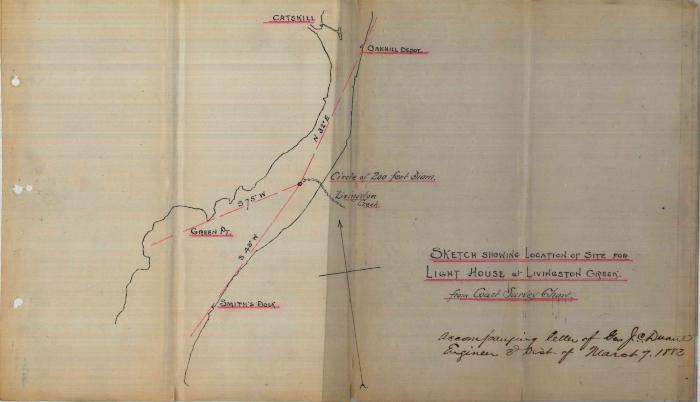 CATSKILL
OAKHILL DEPOT.
N 32° E
Circle of 200 feet diam.
S 75° W
Livingston
Creek.
GREEN PT.
S 40° W
SMITH'S DOCK.
SKETCH SHOWING LOCATION OF SITE FOR
LIGHT HOUSE at LIVINGSTON CREEK.
from Coast Survey Chart.
accompanying letter of Gen J.C. Duane
Engineer 3d Dist. of March 7, 1883